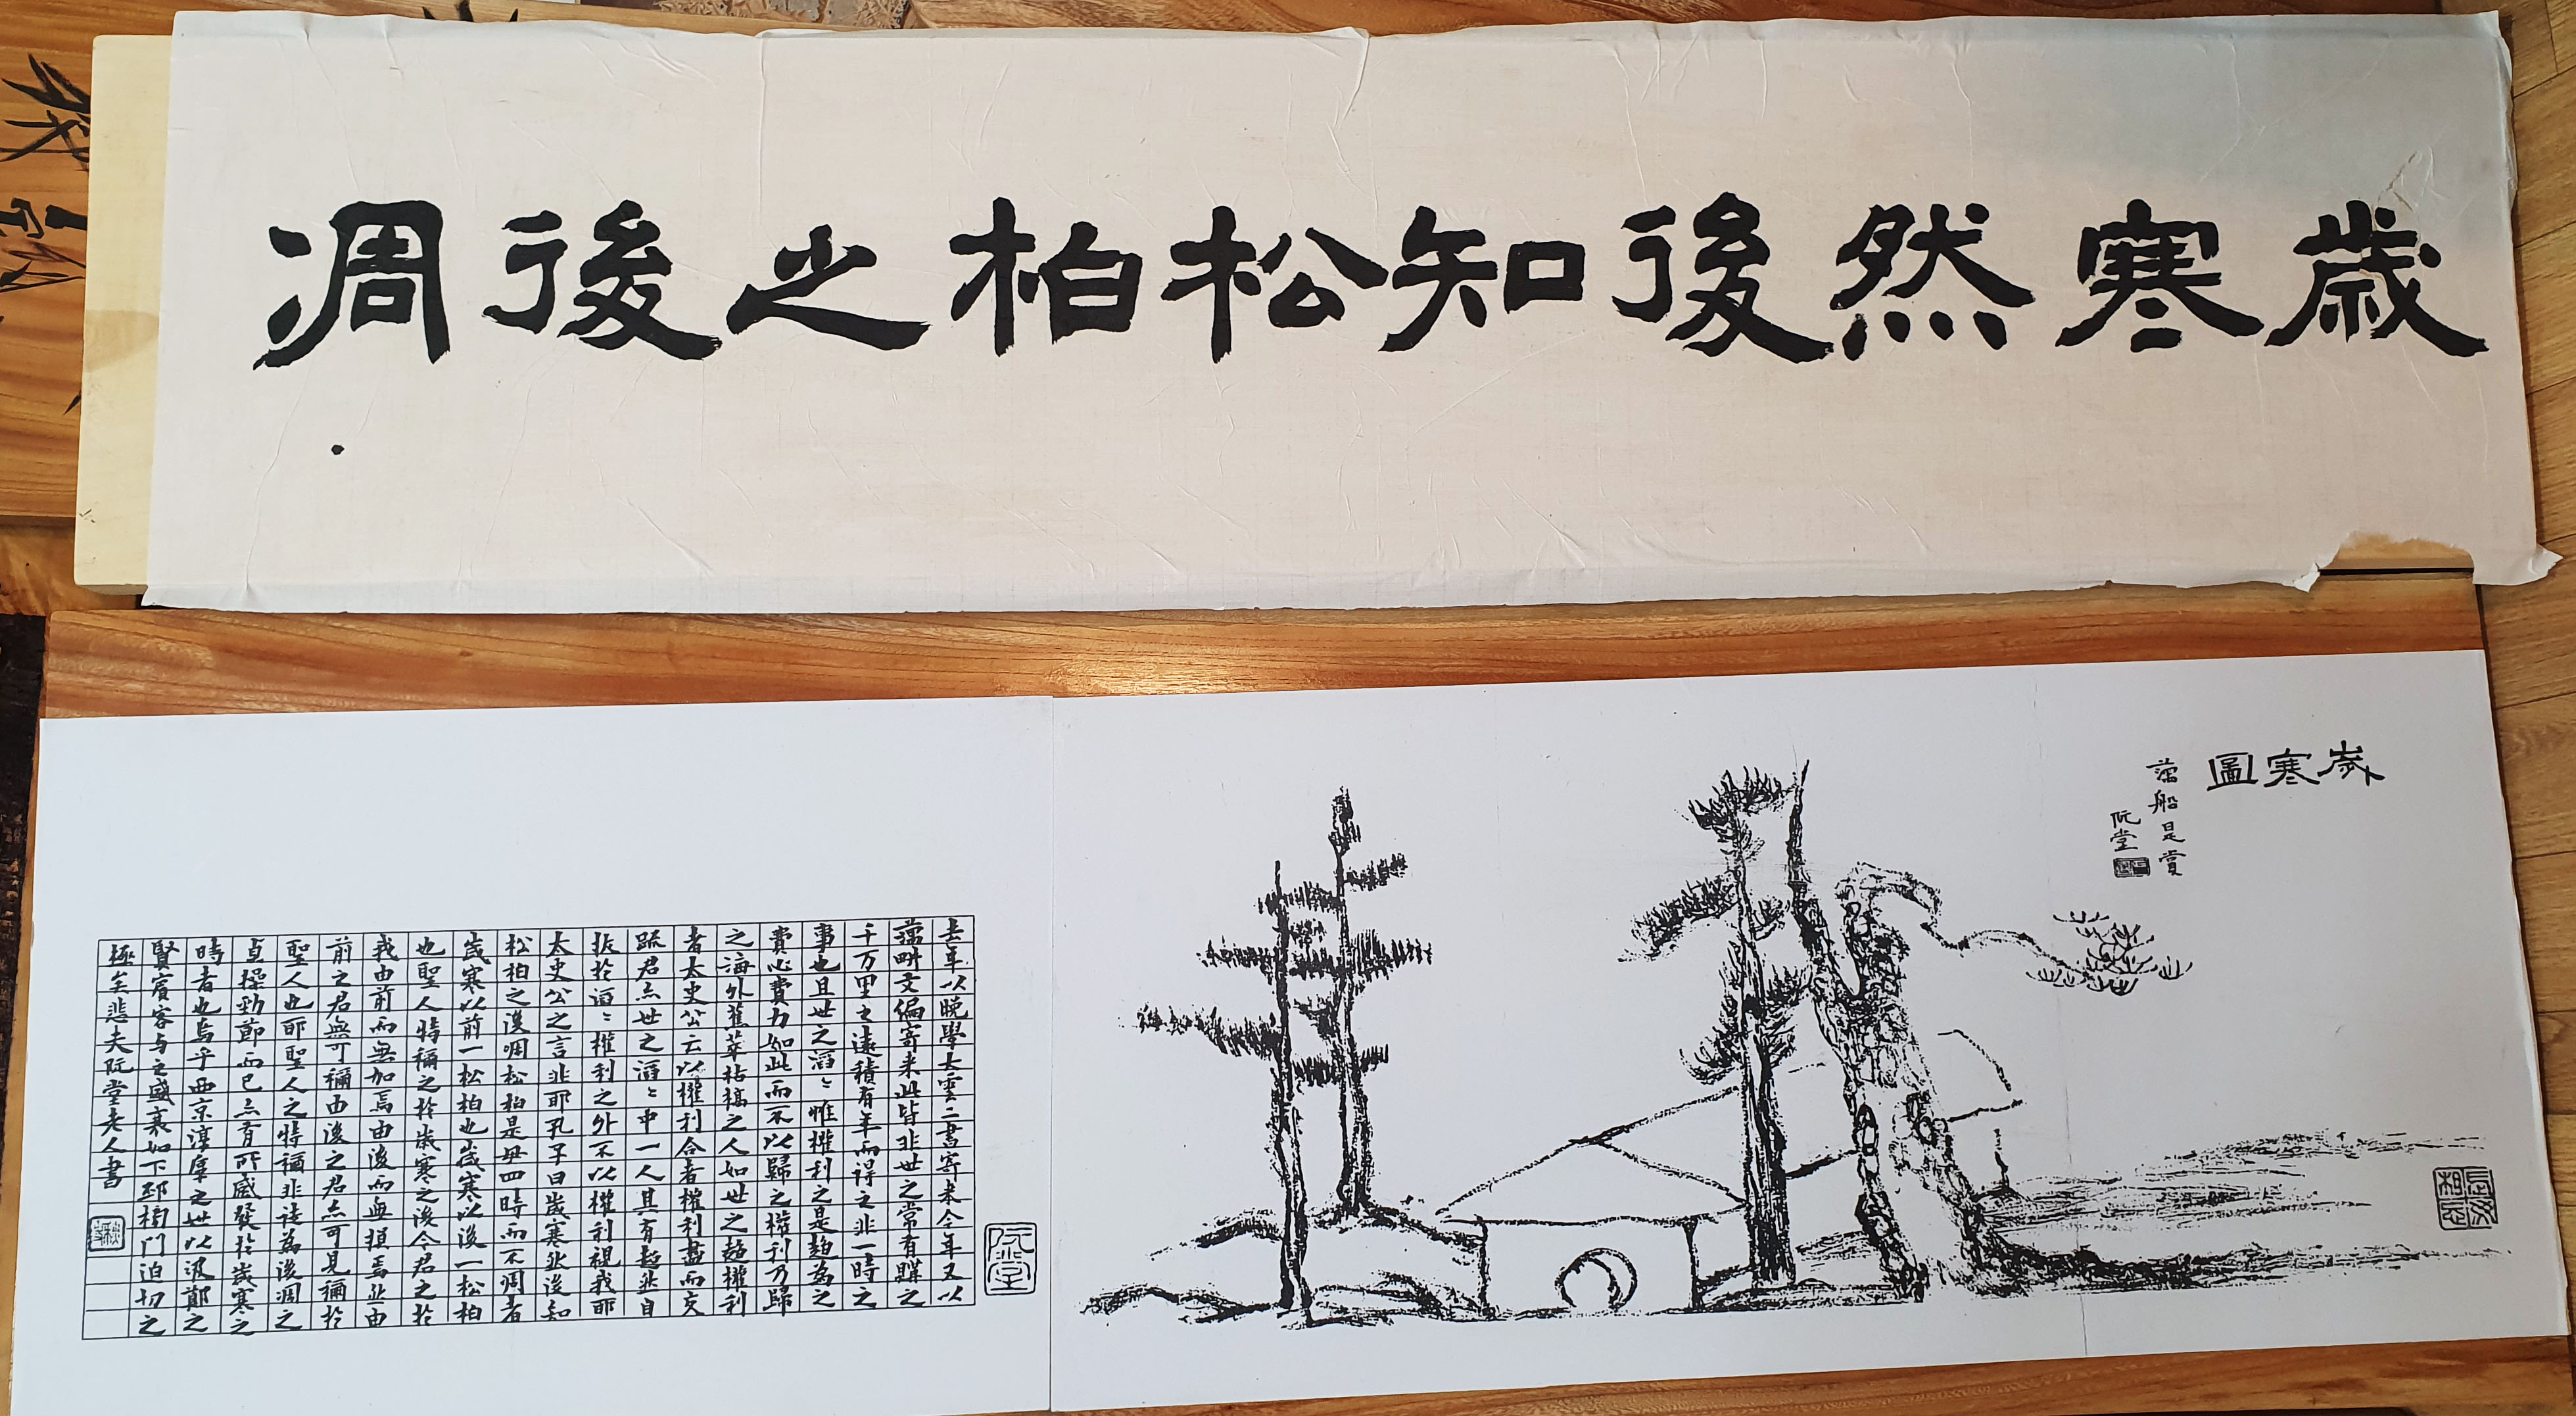 歲寒然後知松柏之後凋
歲寒圖
藕船是賞
阮堂
長毋相忘
阮堂
去年以晚學大雲二書寄來今年又以
藕畊文偏寄来此皆非世之常有購之
千万里之遠積有年而得之非一時之
事也且世之滔〻惟權利之是趨為之
費心費力如此而不以歸之權利乃歸
之海外蕉萃枯槁之人如世之趨權利
者太史公云以權利合者權利盡而交
疏君亦世之滔〻中一人其有超然自
拔於滔〻權利之外不以權利視我耶
太史公之言非耶孔子曰歲寒然後知
松柏之後凋松柏是毋四時而不凋者
歲寒以前一松柏也歲寒以後一松柏
也聖人特稱之於歲寒之後今君之於
我由前而無加焉由後而無損焉然由
前之君無可稱由後之君亦可見稱於
聖人也耶聖人之特稱非徒為後凋之
貞操勁節而已亦有所感發於歲寒之
時者也烏乎西京淳厚之世以汲鄭之
賢賓客与之盛衰如下邳榜門迫切之
極矣悲夫阮堂老人書